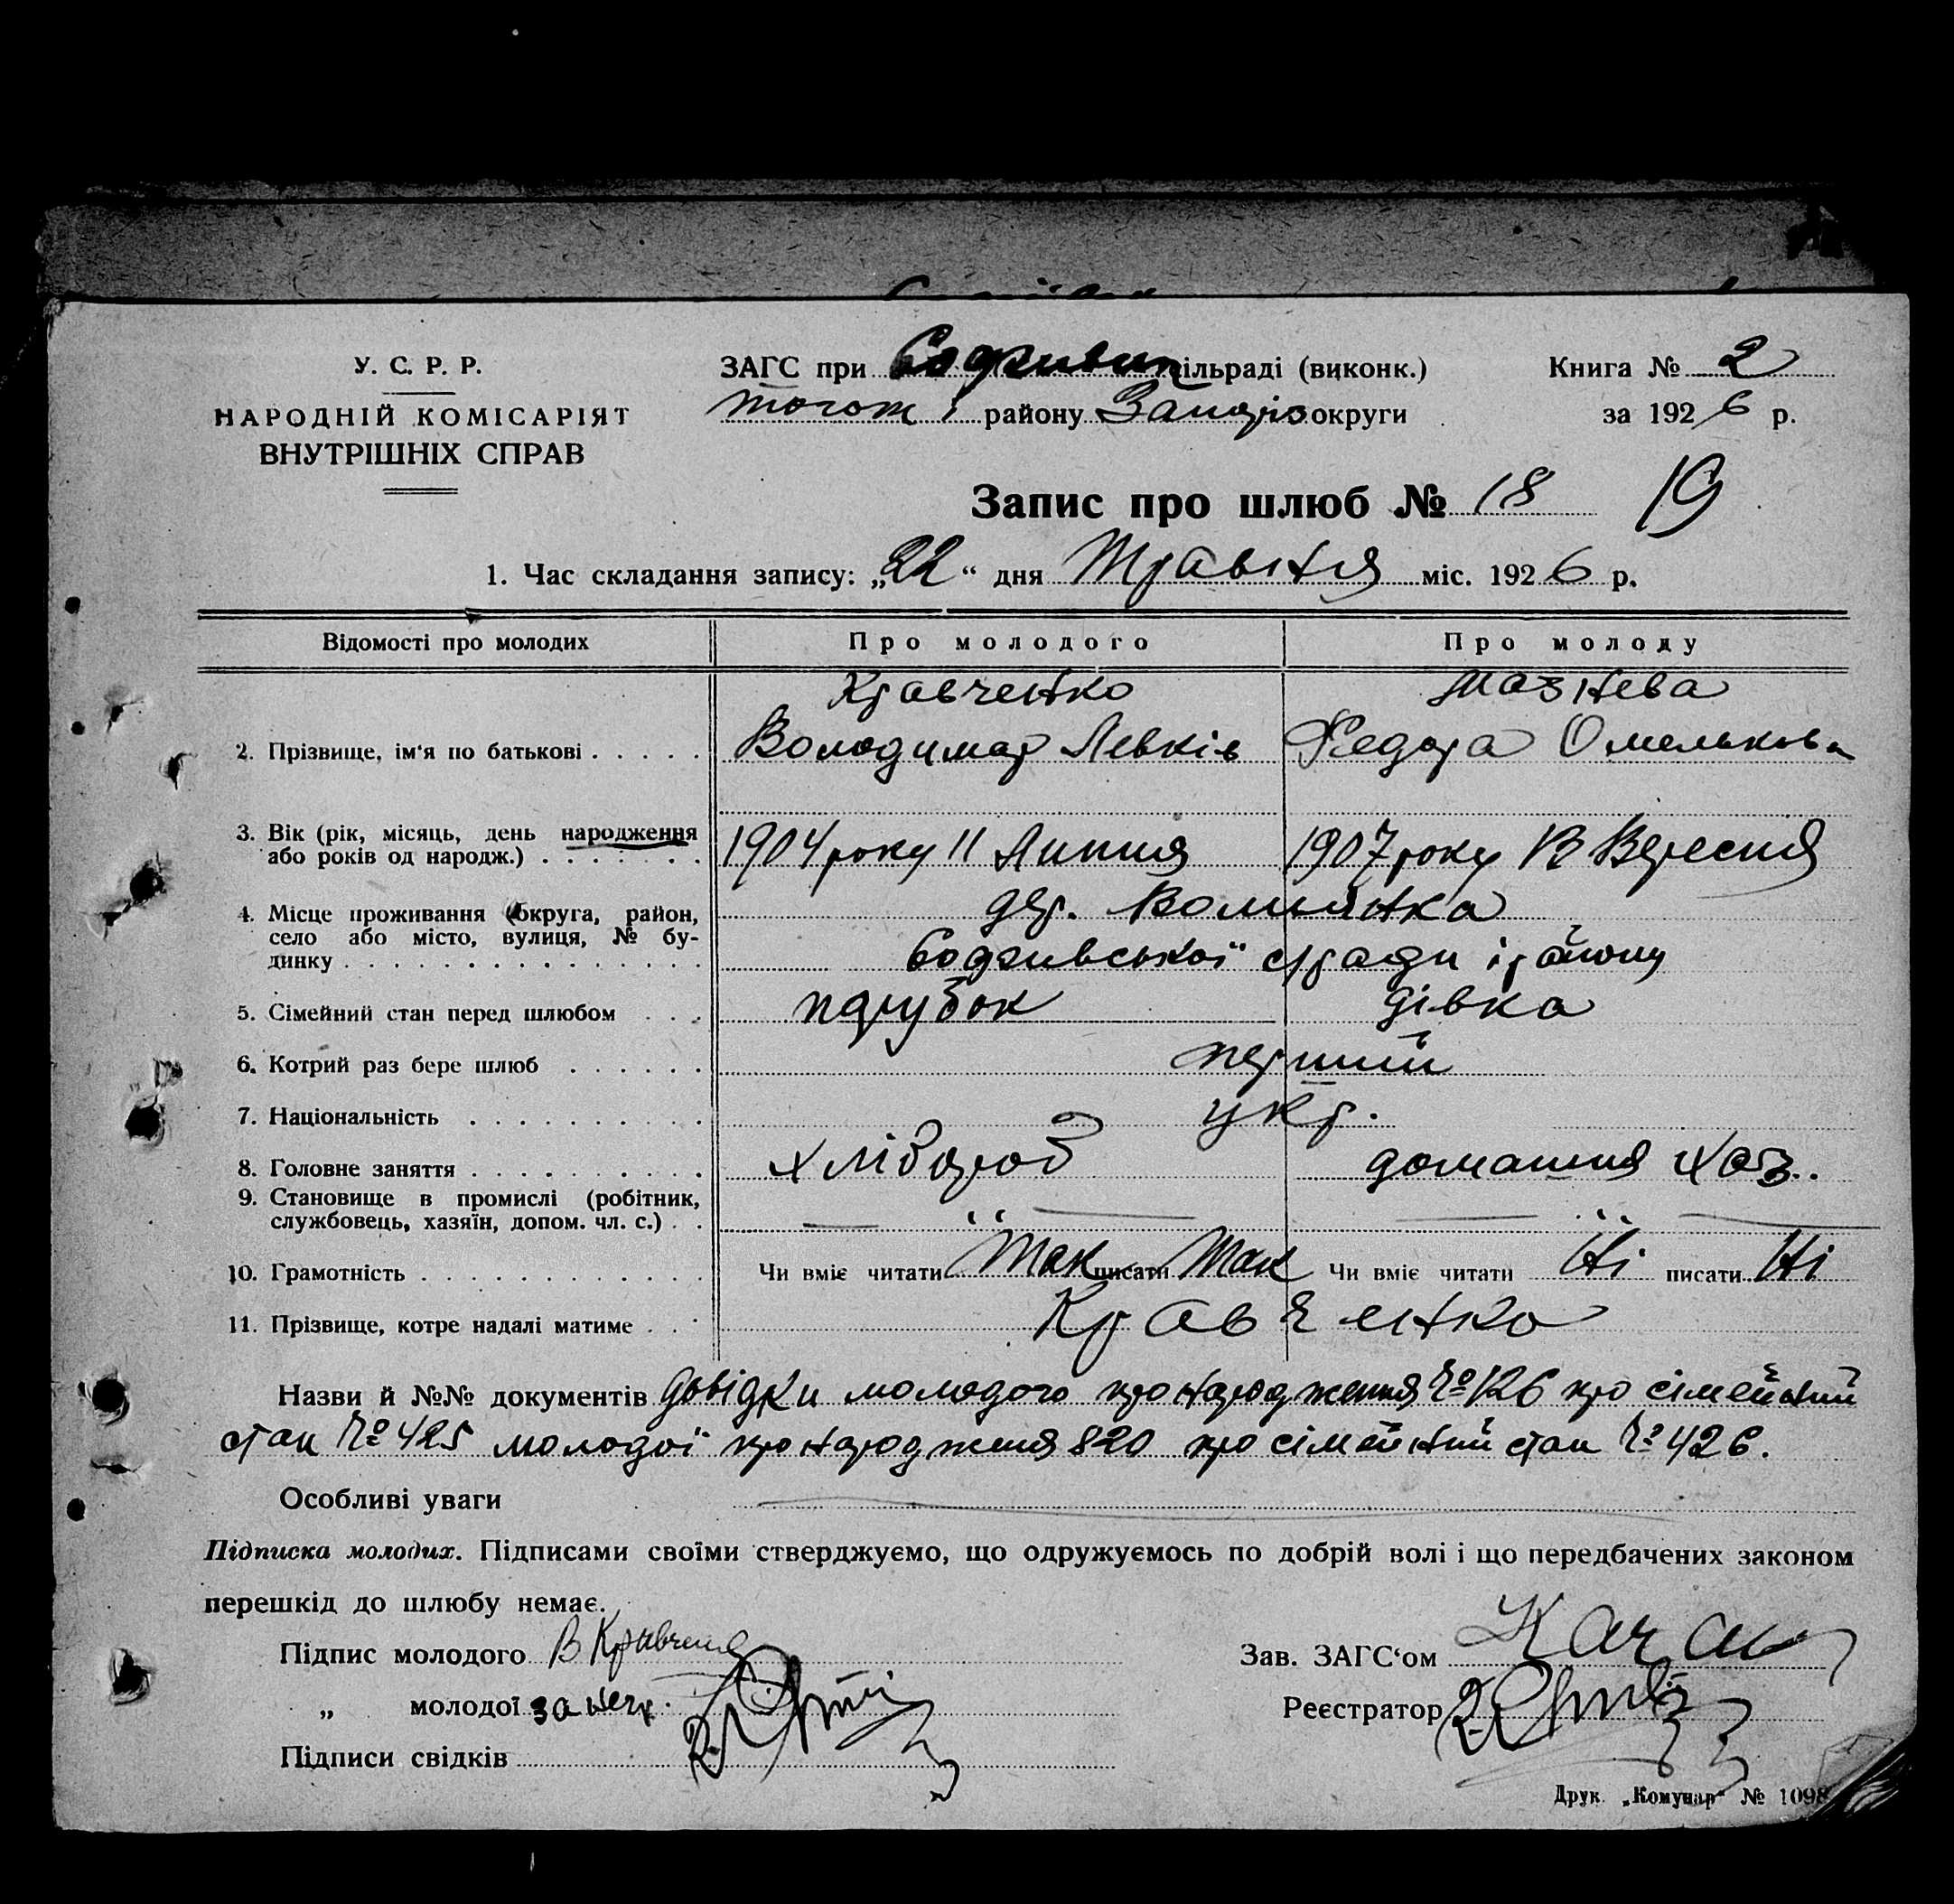 У. С. Р. Р.
НАРОДНІЙ КОМІСАРІЯТ
ВНУТРІШНІХ СПРАВ
ЗАГС при сільраді (виконк.)
тогож району Запоріз округи
Книга № 2
за 1926 р.
Запис про шлюб № 18 19
1. Час складання запису: „22“ дня Травня міс. 1926 р.
Відомості про молодих Про молодого Про молоду
Кравченко Мазнева
2. Прізвище, ім'я по батькові Володимар Левків Федора Омелькова
3. Вік (рік, місяць, день народження
або років од народж.) 1904 року 11 Липня 1907 року Вересня
4. Місце проживання (округа, район, дер.
село або місто, вулиця, № бу-
динку сради і району
5. Сімейний стан перед шлюбом парубок дівка
6. Котрий раз бере шлюб перший
7. Національність укр.
8. Головне заняття хлібороб домашня хоз.
9. Становище в промислі (робітник,
службовець, хазяїн, допом. чл. с.)
10. Грамотність Чи вміє читати Так писати Так Чи вміє читати Ні писати Ні
11. Прізвище, котре надалі матиме Кравченко
Назви й №№ документів довідки молодого про народження № 126 про сімейний
стан № 425 молодої про народження 820 про сімейний стан № 426.
Особливі уваги
Підписка молодих. Підписами своїми стверджуємо, що одружуємось по добрій волі і що передбачених законом
перешкід до шлюбу немає.
Підпис молодого В Кравченко
Зав. ЗАГС'ом
„ молодої за негр.
Реєстратор
Підписи свідків
Друк. „Комунар“ № 1098